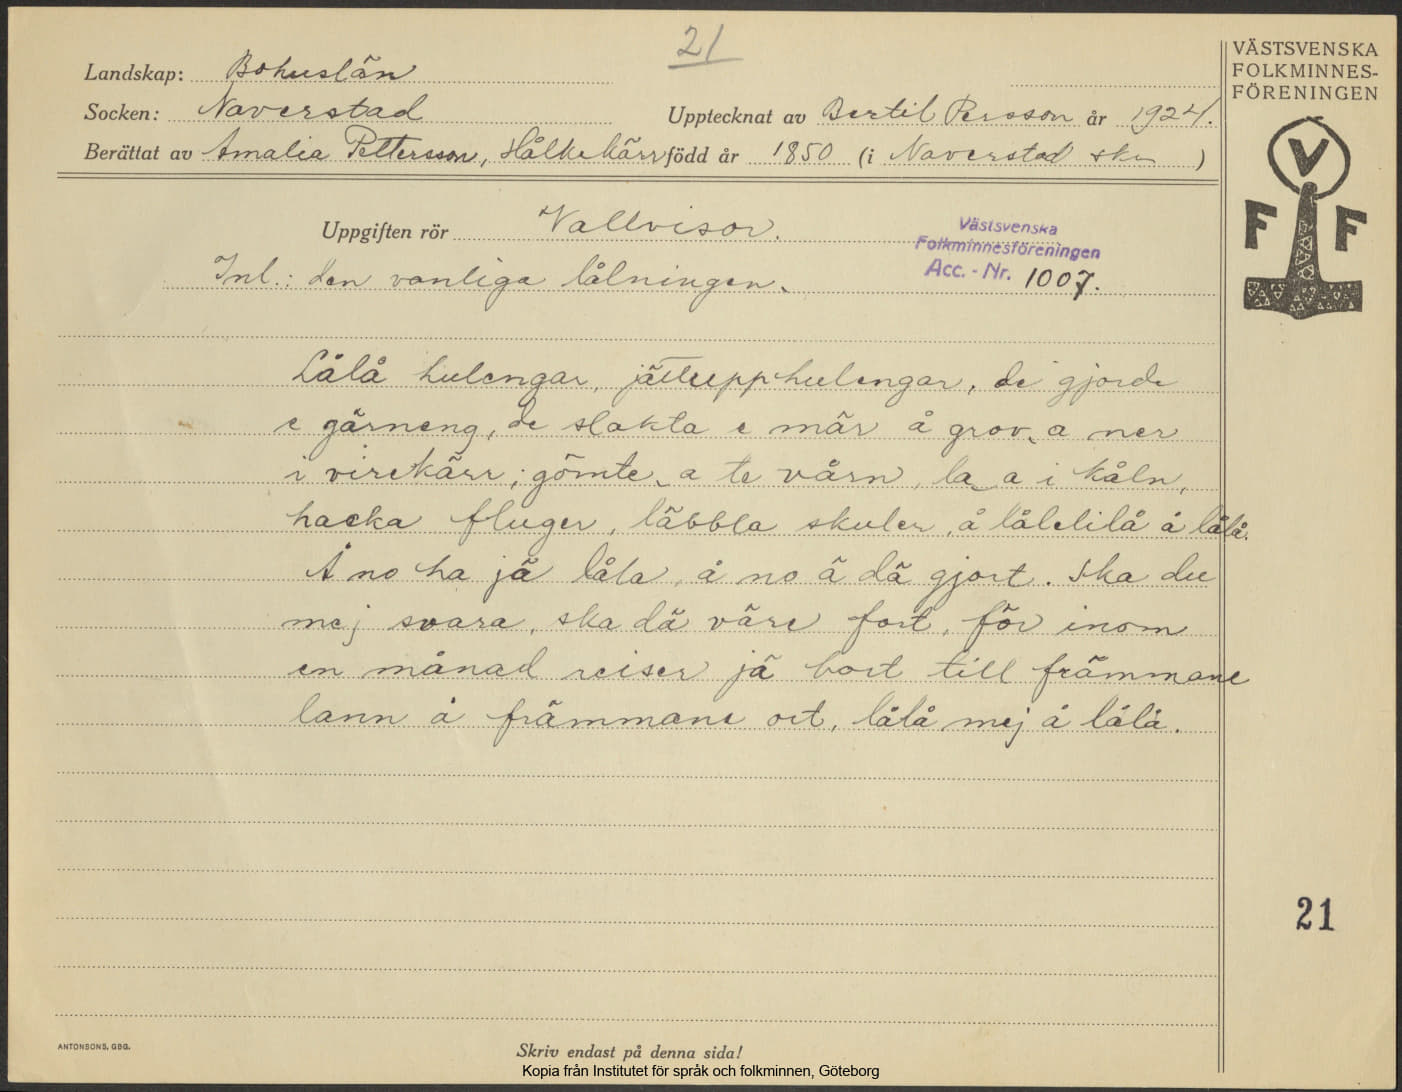 21
VÄSTSVENSKA
FOLKMINNES-
FÖRENINGEN
Landskap: Bohuslän
Socken: Naverstad
Upptecknat av Bertil Persson år 1924.
Berättat av Amalia Pettersson, Hålkekärr född år 1850 (i Naverstad skn )
V
F F
Uppgiften rör Vallvisor.
Västsvenska
Folkminnesföreningen
Acc. - Nr. 1007.
Inl.: den vanliga lålningen.
Lålå hulengar, jätteupphulengar, de gjorde
e gärneng, de slakta e mär å grov a ner
i virekärr; gömte a te vårn, la a i kåln,
hacka fluger, läbbla skuler, å lålelilå å lålå.
Å no ha jä låla, å no ä dä gjort. Ska du
mej svara, ska dä väre fort, för inom
en månad reiser jä bort till främmane
lann å främmane ort, lålå mej å lålå.
21
ANTONSONS, GBG.
Skriv endast på denna sida!
Kopia från Institutet för språk och folkminnen, Göteborg